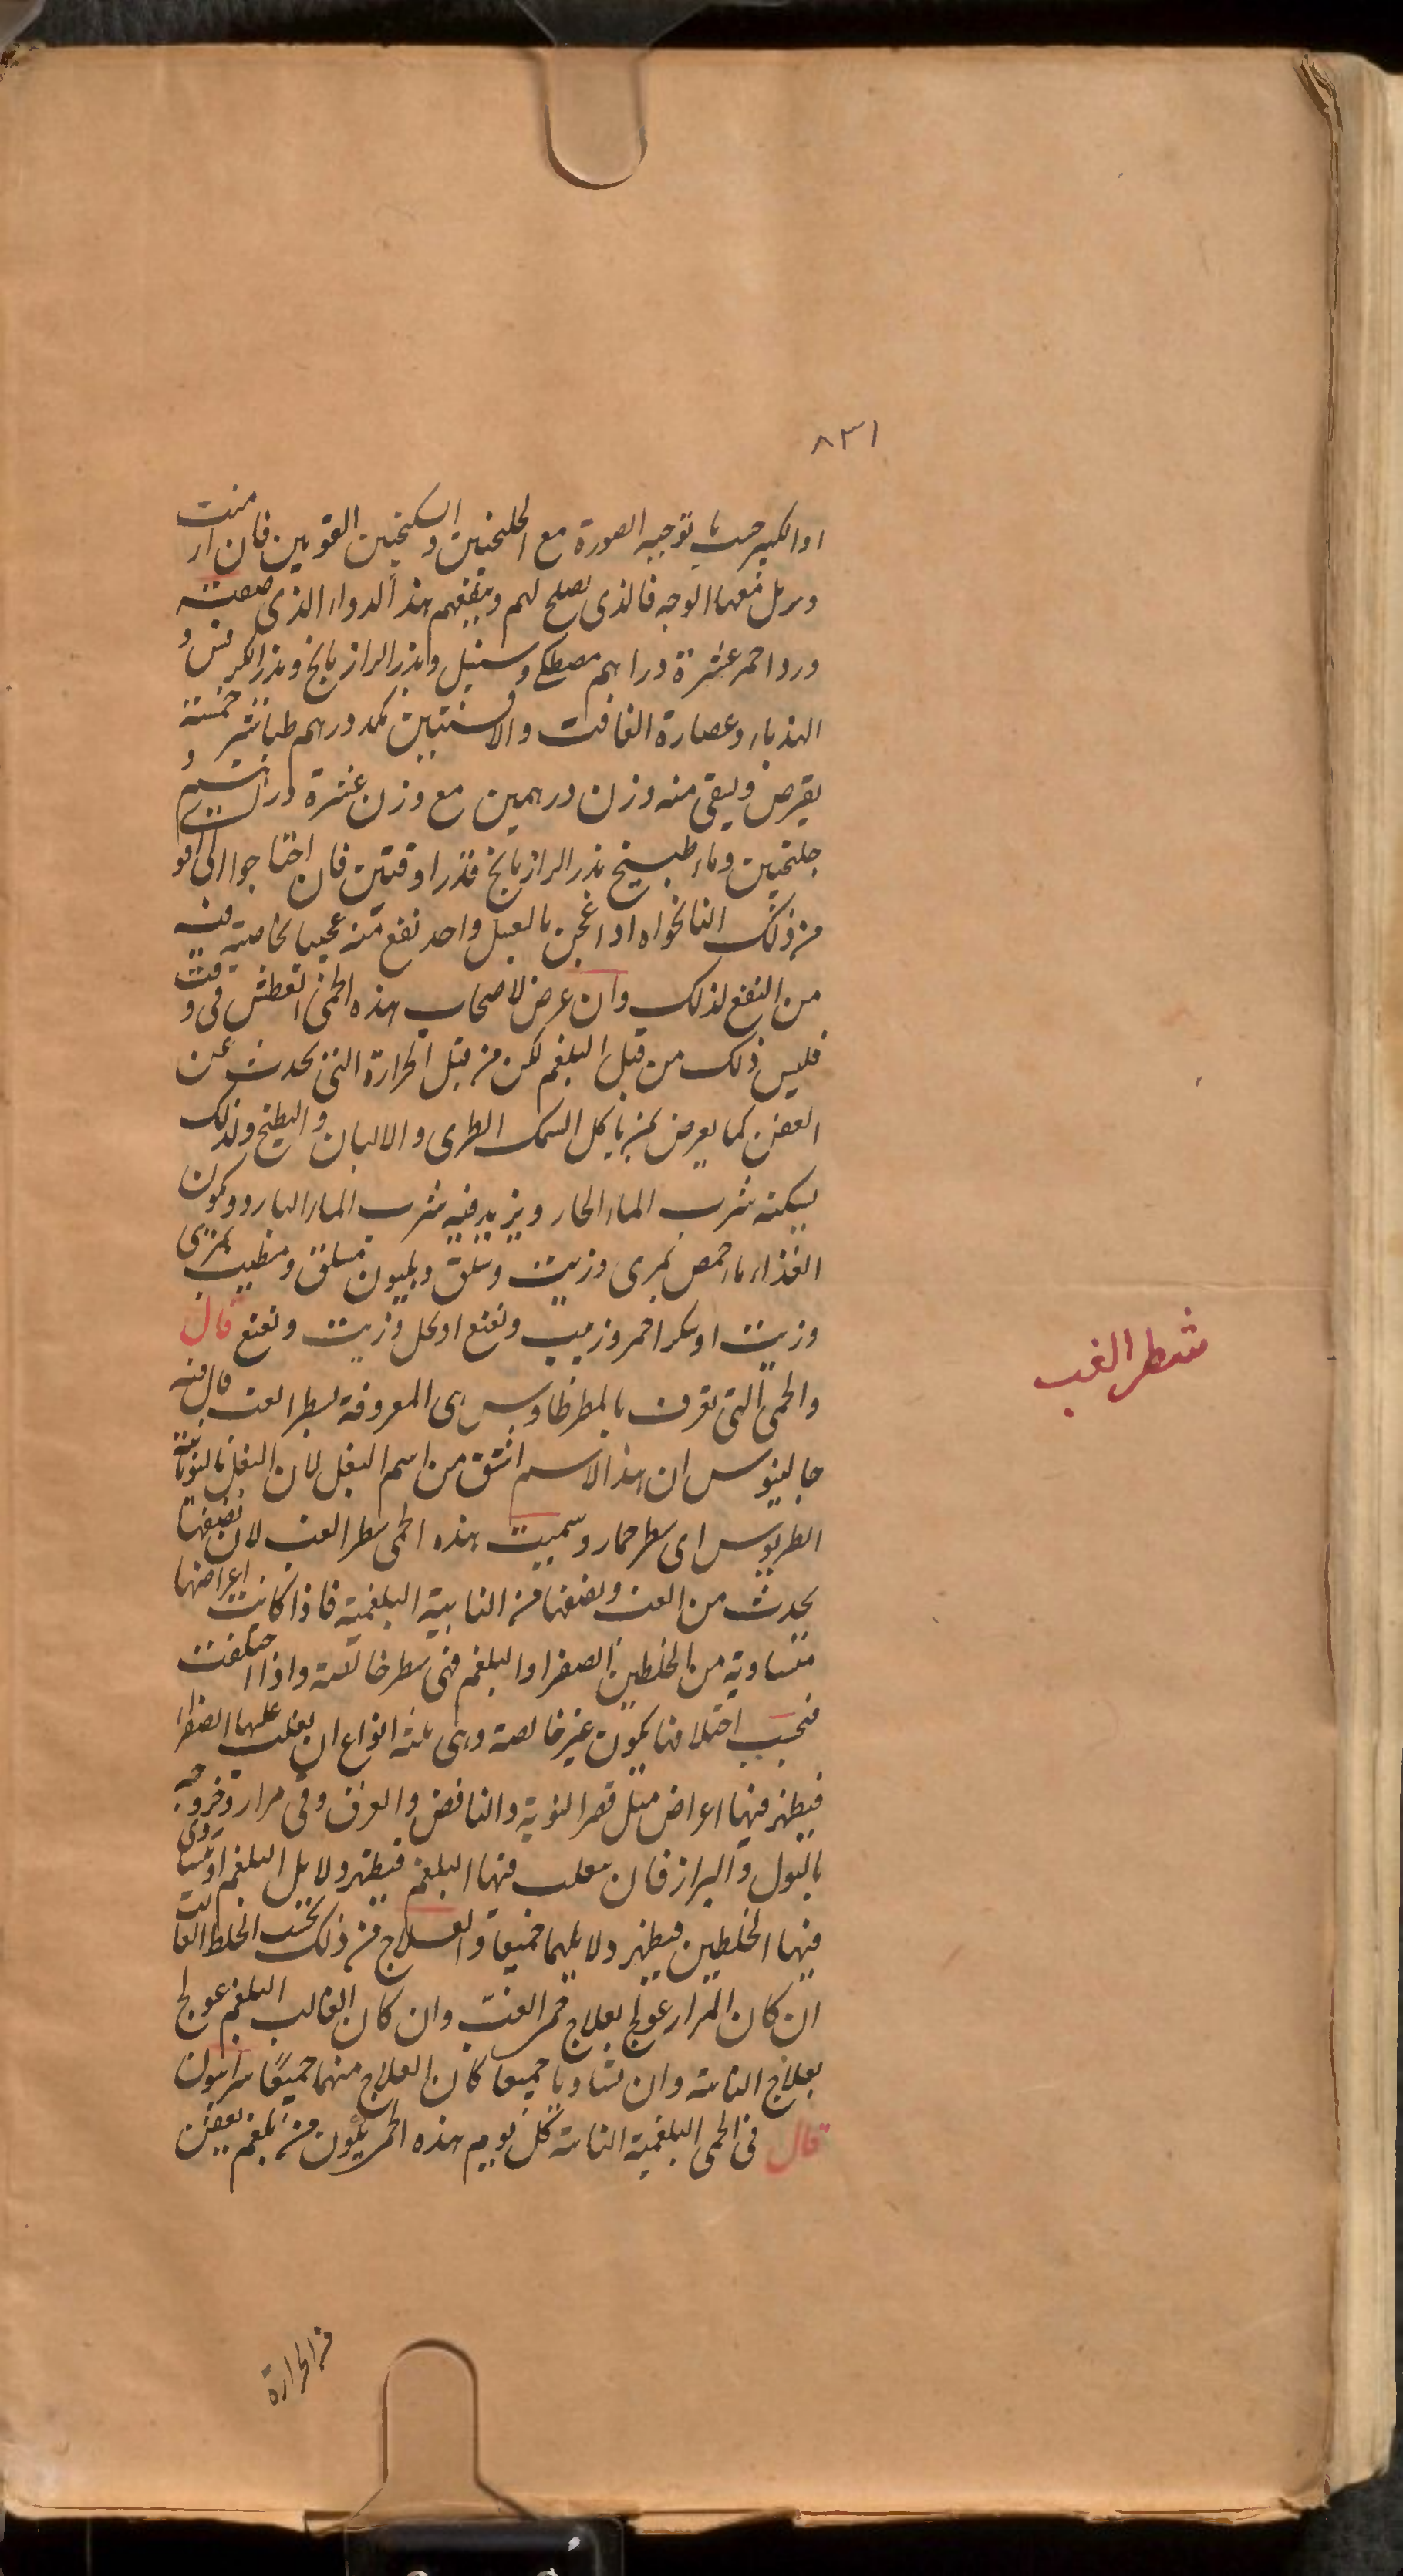 ٨٣١
او الكبير حسب ما توجبه الصورة مع الجلنجبين والسكنجبين القويين فان ازمنت
وبرل معها الوجه فالذى يصلح لهم وينفعهم هذا الدواء الذى صفته
ورد احمر عشرة دراهم مصطكى وسنبل وبزر الرازيانج وبزر الكرفس و
الهندباء وعصارة الغافت والافسنتين بكد درهم طباشير خمسة
يقرص ويسقى منه وزن درهمين مع وزن عشرة دراهم
جلنجبين وماء طبيخ بزر الرازيانج قدر اوقيتين فان احتاجوا الى اقو
من ذلك النانخواه اذا عجن بالعسل واحد نفع منه عجيبا لخاصية فيه
من النفع لذلك وان عرض لاصحاب هذه الحمى العطش فى وقت
فليس ذلك من قبل البلغم لكن من قبل الحرارة التى يحدث عن
العفن كما يعرض لمن ياكل السمك الطرى والالبان والبطيخ ولذلك
يسكنه شرب الماء الحار ويزيد فيه شرب الماء البارد ويكون
الغذاء ماء حمص بمرى وزيت وسلق وهليون مسلق ومطيب بمرى
وزيت او سكر احمر وزبيب ونعنع او بخل وزيت ونعنع قال
والحمى التى تعرف بالمطرطاوس هى المعروفة بشطر الغب قال فيه
جالينوس ان هذا الاسم اشتق من اسم البغل لان البغل باليونانية
الطريوس اى شطر حمار وسميت هذه الحمى شطر الغب لان نصفها
يحدث من الغب ونصفها من النايبة البلغمية فاذا كانت اعراضها
متساوية من الخلطين الصفرا والبلغم فهى شطر خالصة واذا اختلفت
فبحسب اختلافها يكون غير خالصة وهى ثلثة انواع ان يغلب عليها الصفرا
فيظهر فيها اعراض مثل قصر النوبة والنافض والعرق وقى مرار وخروجه
بالبول والبراز فان يغلب فيها البلغم فيظهر دلايل البلغم او يتساوى
فيها الخلطين فيظهر دلايلهما جميعا والعلاج من ذلك بحسب الخلط الغالب
ان كان المرار عولج بعلاج حمى الغب وان كان الغالب البلغم عولج
بعلاج النايبة وان تساويا جميعا كان العلاج منهما جميعا سرابيون
قال فى الحمى البلغمية النايبة كل يوم هذه الحمى يكون من بلغم يعفن
شطر الغب
من الحرارة